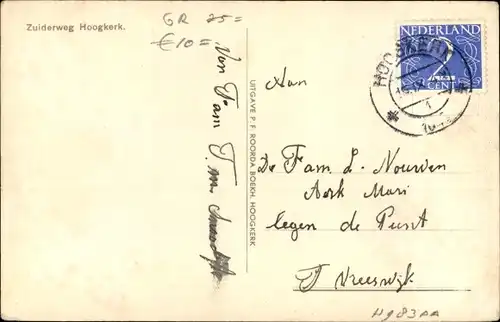 Zuiderweg Hoogkerk.
GR 25=
€10=
Van Fam
T. m.
UITGAVE P. F. ROORDA BOEKH. HOOGKERK
NEDERLAND
2
CENT
HOOGKERK
Aan
De Fam. L. Nourven
Aerk Mari
legen de Punt
T Vreeswijk
H983AA